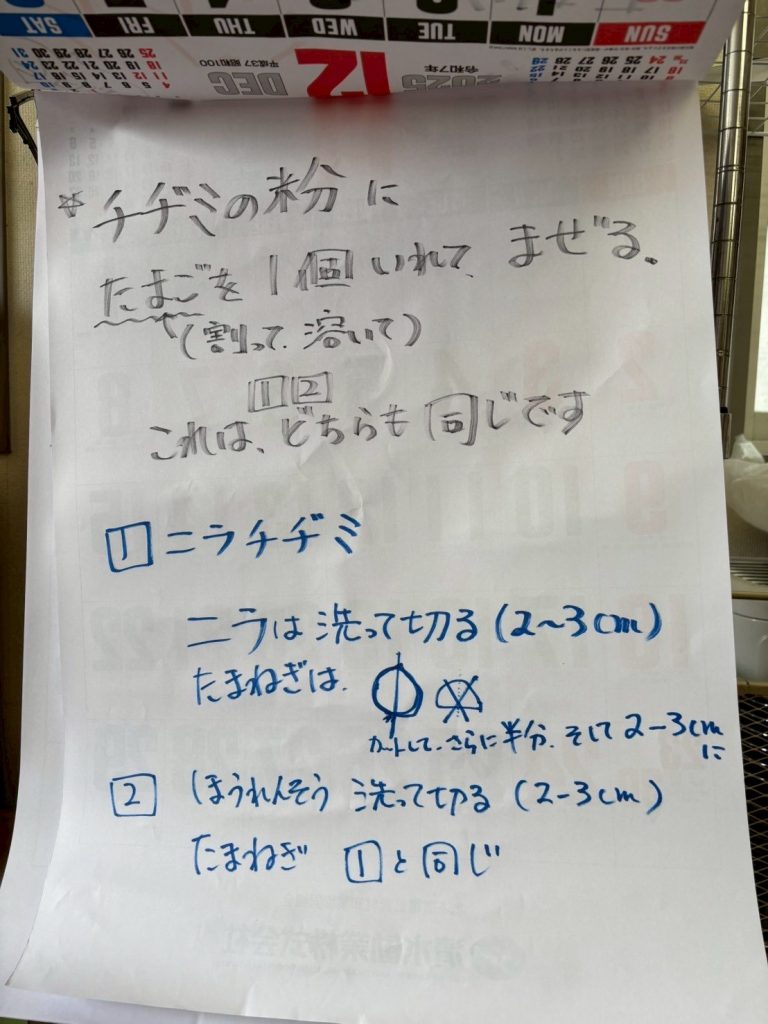 SUN MON TUE WED THU FRI SAT
2025 令和7年 12 DEC 平成37 昭和100
☆チヂミの粉に
たまごを 1個 いれて、まぜる。
(割って、溶いて)
1 2
これは、どちらも 同じです
1 ニラチヂミ
ニラは 洗って切る (2〜3cm)
たまねぎは、
カットして、さらに半分、そして 2-3cm
に
2 ほうれんそう 洗って切る (2-3cm)
たまねぎ 1と同じ
清水勧業株式会社